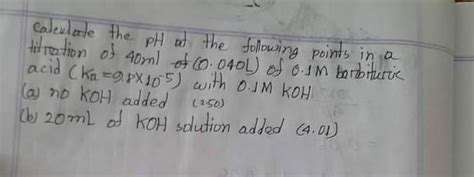 calculate the pH at the following points in a
titration of 40ml of (0.040L) of 0.1M barbituric
acid (Ka=9.8×10-5) with 0.1M KOH
(a) no KOH added (2.50)
(b) 20mL of KOH solution added (4.01)